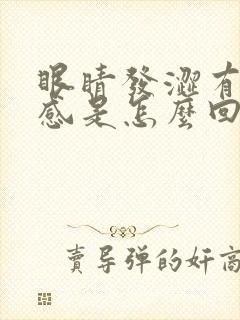 眼睛發澀有
感是怎麼回
賣导弹的奸商